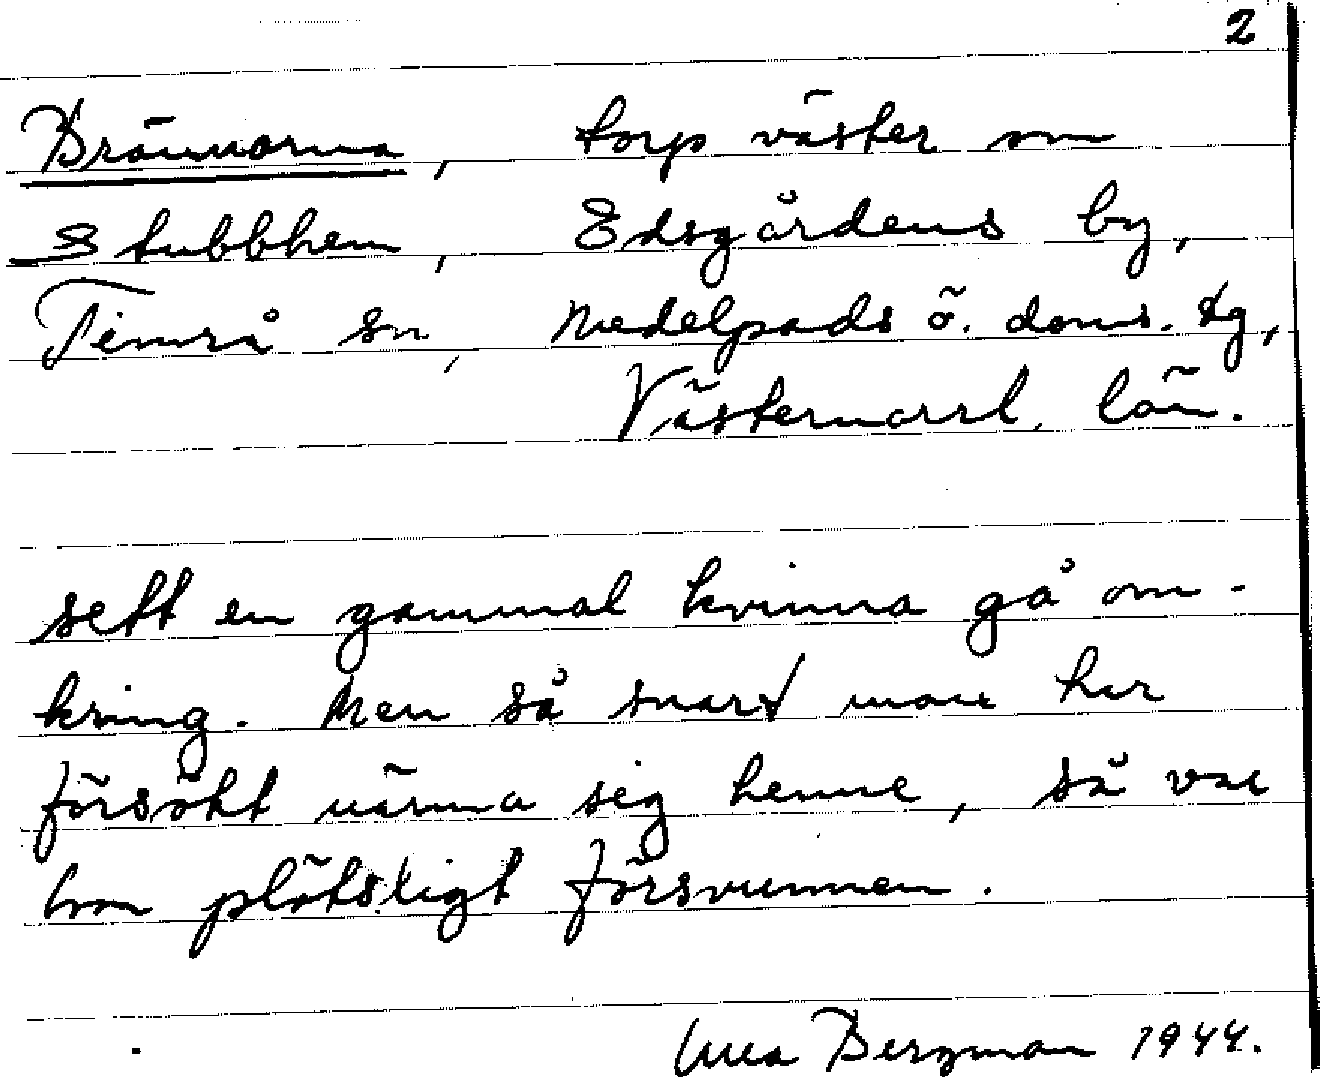 2
Brännorna, torp väster om
Stubbhem, Edsgårdens by,
Timrå sn, Medelpads ö. doms. tg,
Västernorrl. län.
sett en gammal kvinna gå om-
kring. Men så snart man har
försökt närma sig henne, så var
hon plötsligt försvunnen.
Bergman 1944.